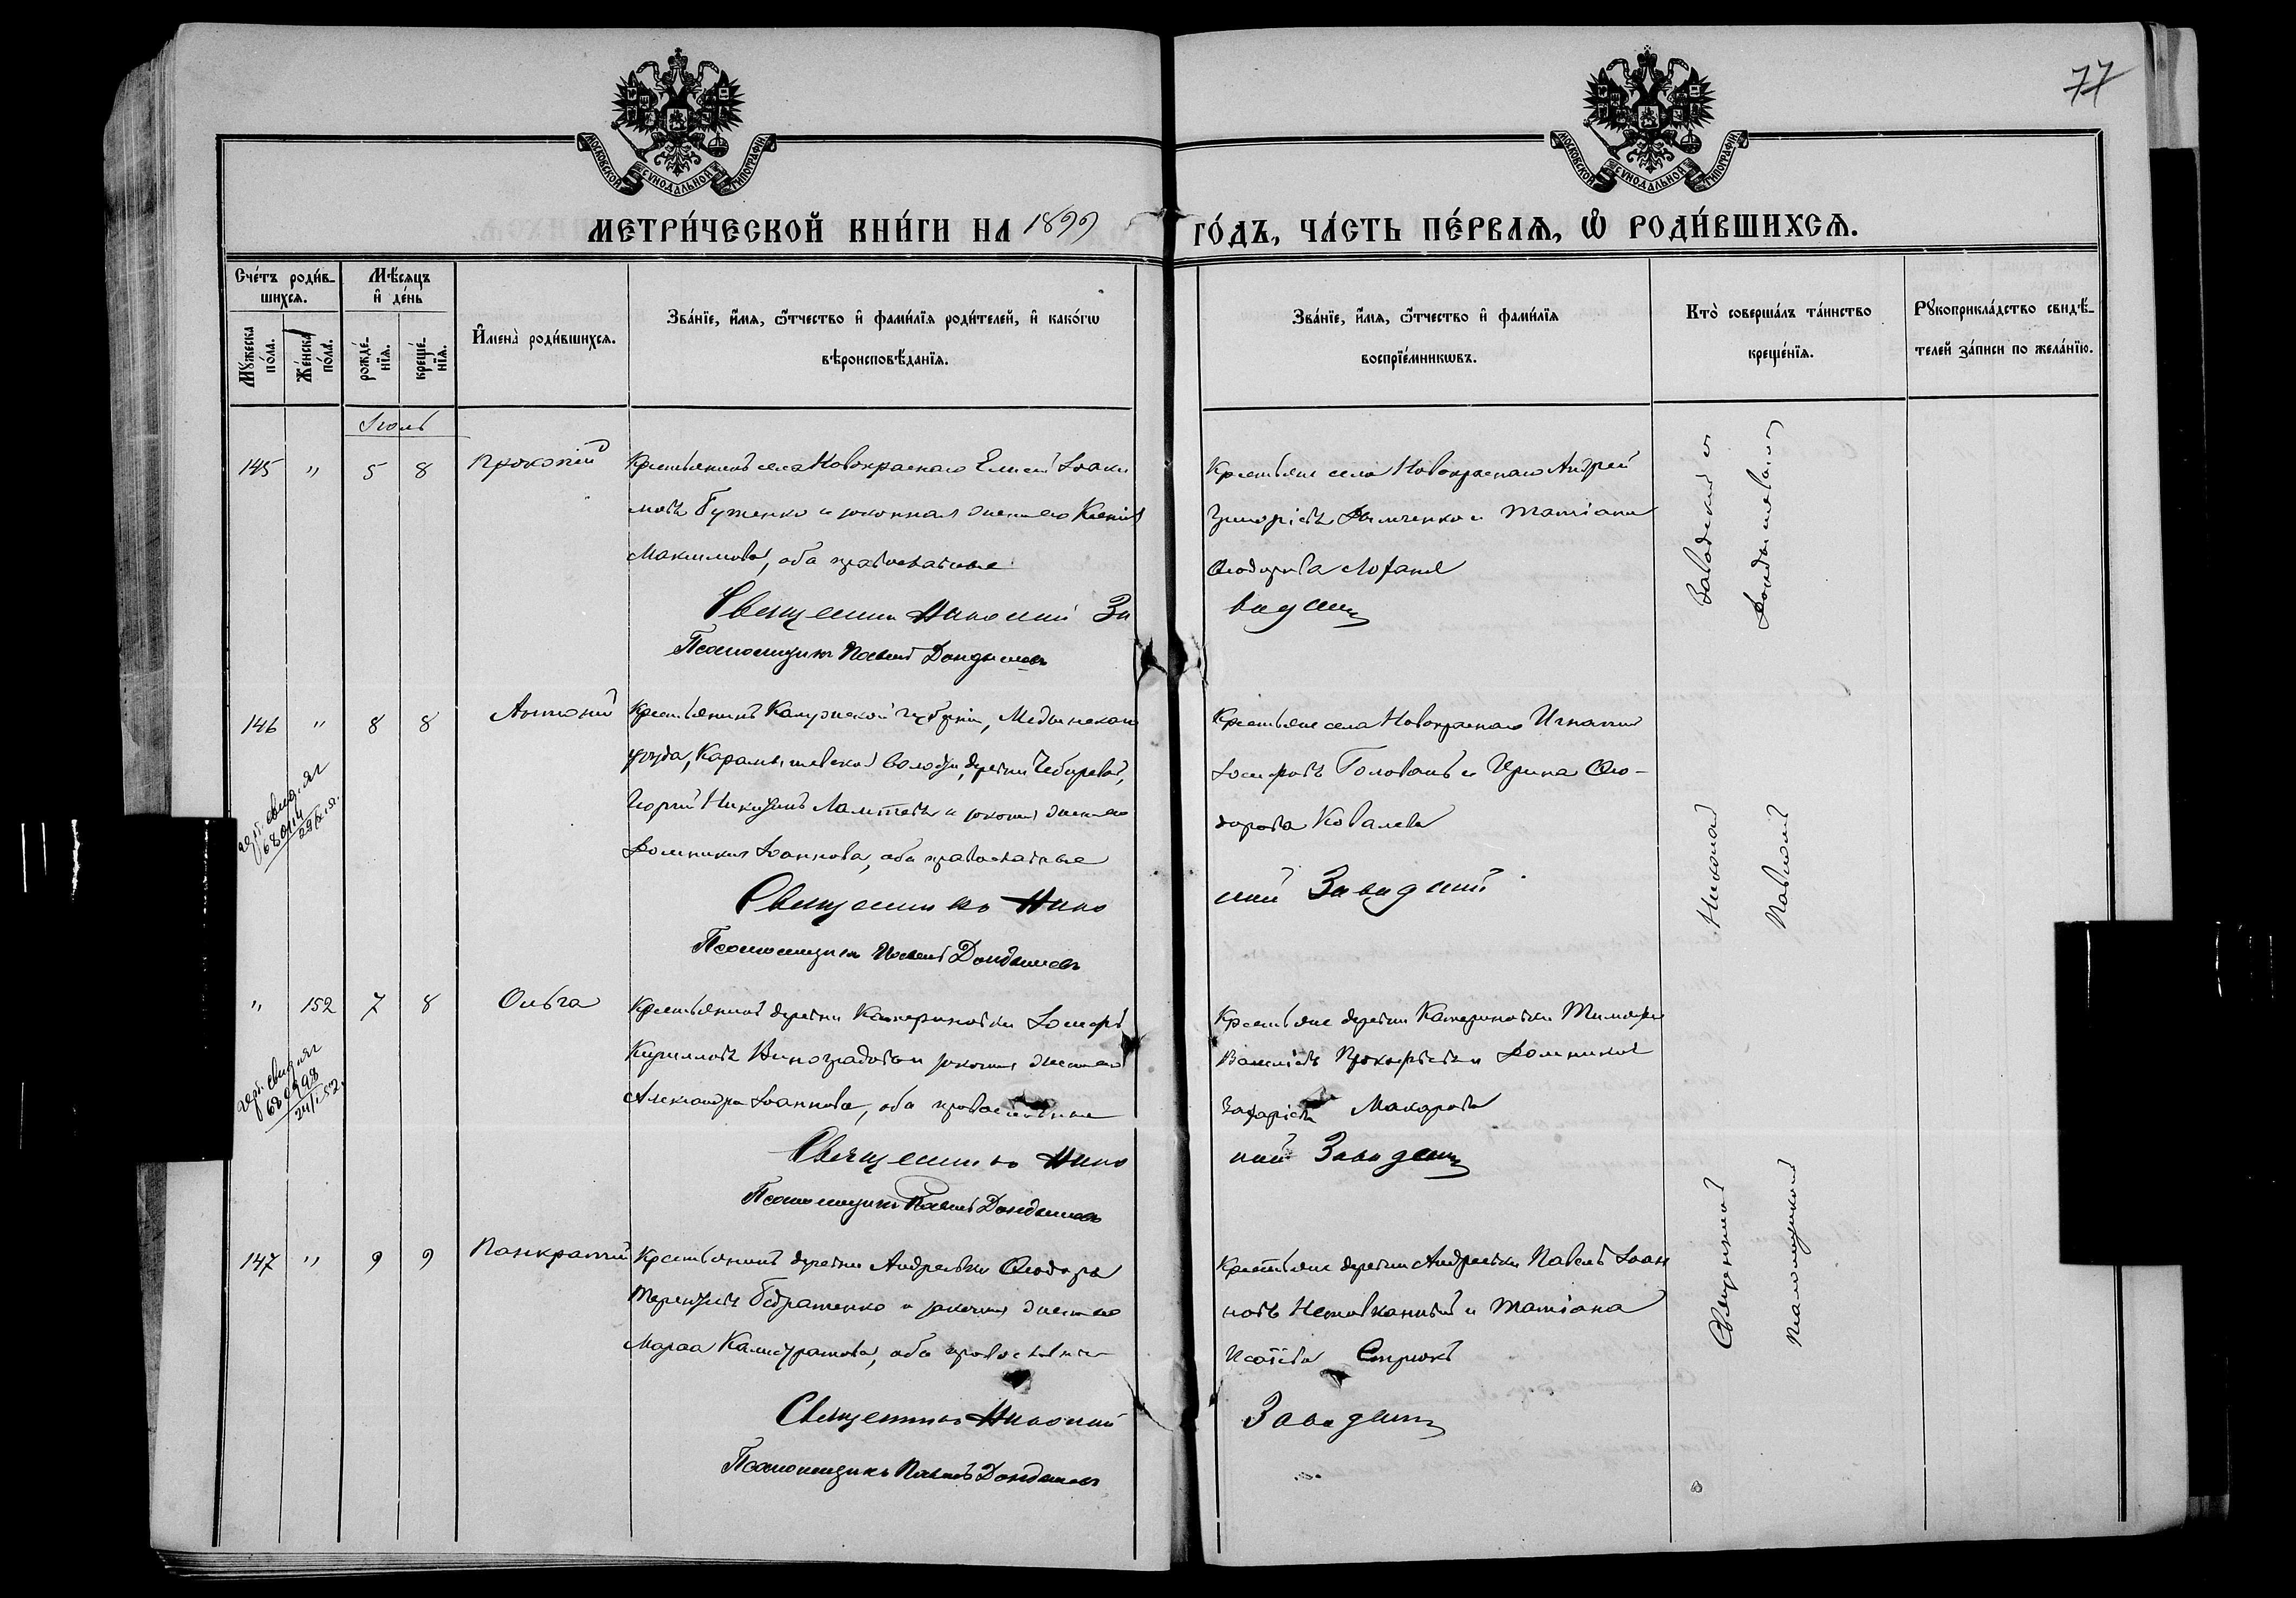 77
МОСКОВСКОЙ СѴНОДАЛЬНОЙ ТИПОГРАФІИ
МОСКОВСКОЙ СѴНОДАЛЬНОЙ ТИПОГРАФІИ
МЕТРИ́ЧЕСКОЙ КНИ́ГИ НА 1899 ГО́ДЪ, ЧА́СТЬ ПЕ́РВАѦ, Ѡ РОДИ́ВШИХСѦ.
Сче́тъ роди́в-
шихсѧ.
Мꙋжеска по́ла.
Же́нска по́ла.
Мѣ́сѧцъ
и҆ де́нь
рожде́-
нїѧ.
креще́-
нїѧ.
И҆мена̀ роди́вшихсѧ.
Зва́нїе, и҆́мѧ, ѻ҆́тчество и҆ фами́лїѧ роди́телей, и҆ како́гѡ
вѣроисповѣ́данїѧ.
Зва́нїе, и҆́мѧ, ѻ҆́тчество и҆ фами́лїѧ
воспрїе́мникѡвъ.
Кто̀ соверша́лъ та́инство
креще́нїѧ.
Рꙋкоприкла́дство свидѣ́-
телей за́писи по жела́нїю.
Іюль
145 " 5 8 Прокопій
Крестьянинъ села Новокраснаго Елисей Іоаки
мовъ Буженко и законная жена его Ксенія
Максимова, оба православные
Крестьяне села Новокраснаго Андрей
Григоріевъ и Татіана
Ѳеодорова
Священникъ Николай За
вадскій
Псаломщикъ Павелъ Дондышевъ
146 " 8 8 Антоній
Крестьянинъ Калужской губерніи, Медынскаго
уѣзда, Карамышевской волости, деревни
Георгій Никитинъ и законная жена его
Домникія Іоаннова, оба православные
Крестьяне села Новокраснаго Игнатій
Іосифовъ Голованъ и Ирина Ѳео-
дорова Ковалева
Священникъ Нико
лай Завадскій
Псаломщикъ Павелъ Дондышевъ
" 152 7 8 Ольга
Крестьянинъ деревни Катериновки Іосифъ
Кирилловъ Виноградовъ и законная жена его
Александра Іоаннова, оба православные
Крестьяне деревни Катериновки Тимофей
Васильевъ Прокофьевъ и Домникія
Захаріева Макарова
Священникъ Нико
лай Завадскій
Псаломщикъ Павелъ Дондышевъ
147 " 9 9 Панкратій
Крестьянинъ деревни Андреевки Ѳеодоръ
Терентьевъ и законная жена его
Марѳа Калистратова, оба православные
Крестьяне деревни Андреевки Павелъ Іоан
новъ и Татіана
Исаіева
Священникъ Николай
Завадскій
Псаломщикъ Павелъ Дондышевъ
Священникъ Николай Завадскій и
Псаломщикъ Павелъ Дондышевъ